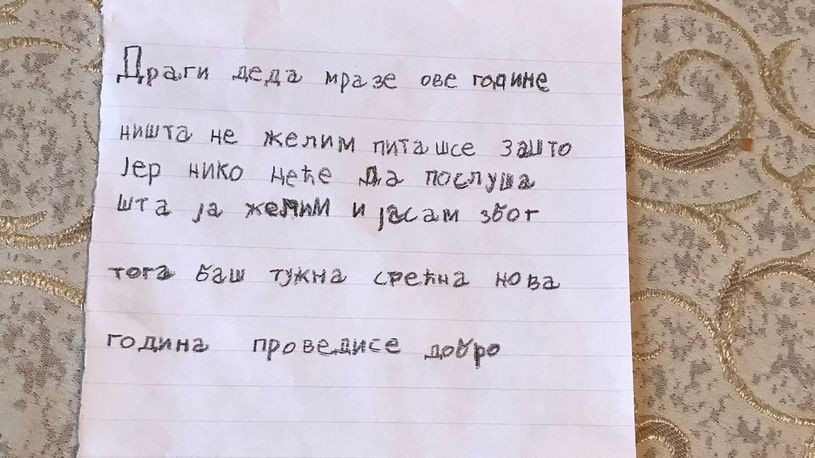 Драги деда мразе ове године
ништа не желим питашсе зашто
јер нико неће да послуша
шта ја желим и јасам због
тога баш тужна срећна нова
година проведисе добро